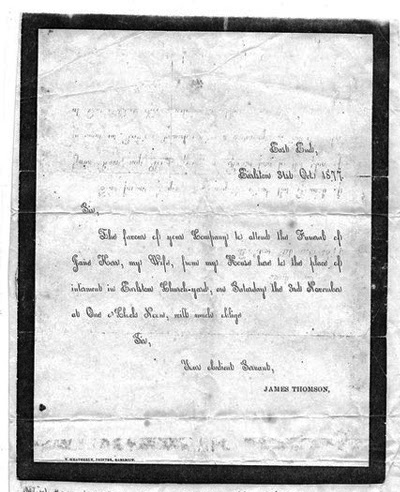 East End,
Earlston 31st Octr 1877.
Sir,
The favour of your Company to attend the Funeral of
Jane Kerr, my Wife, from my House here to the place of
interment in Earlston Church-yard, on Saturday the 3rd November
at One o'Clock Noon, will much oblige
Sir,
Your obedient Servant,
JAMES THOMSON.
PRINTER,